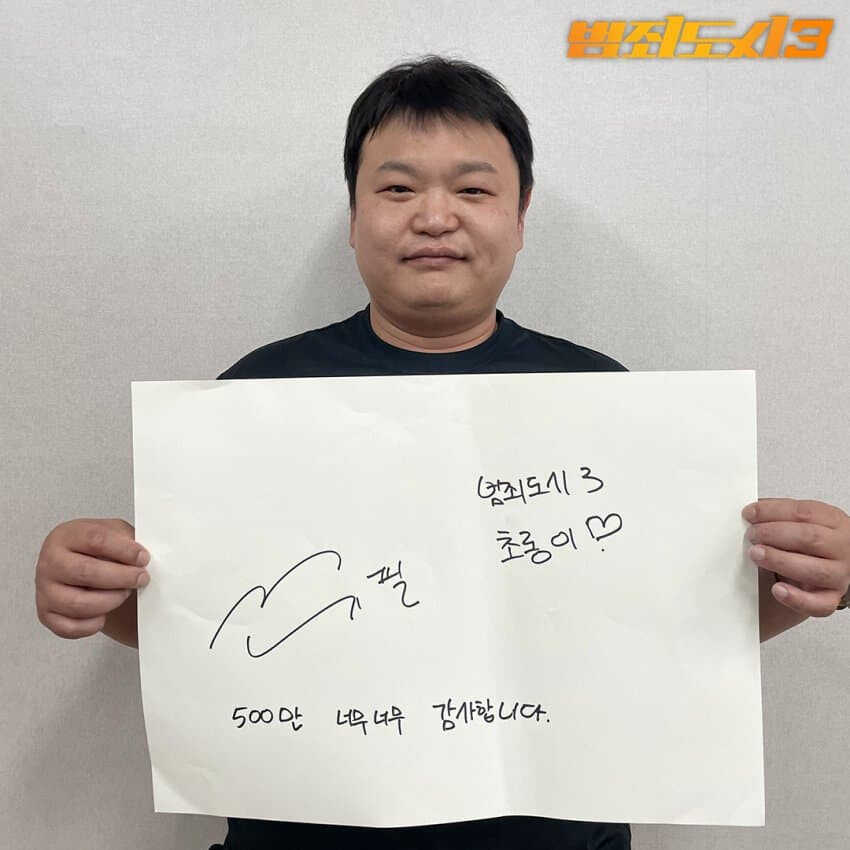 범죄도시3
범죄도시 3
초롱이♡
필
500만 너무너무 감사합니다.